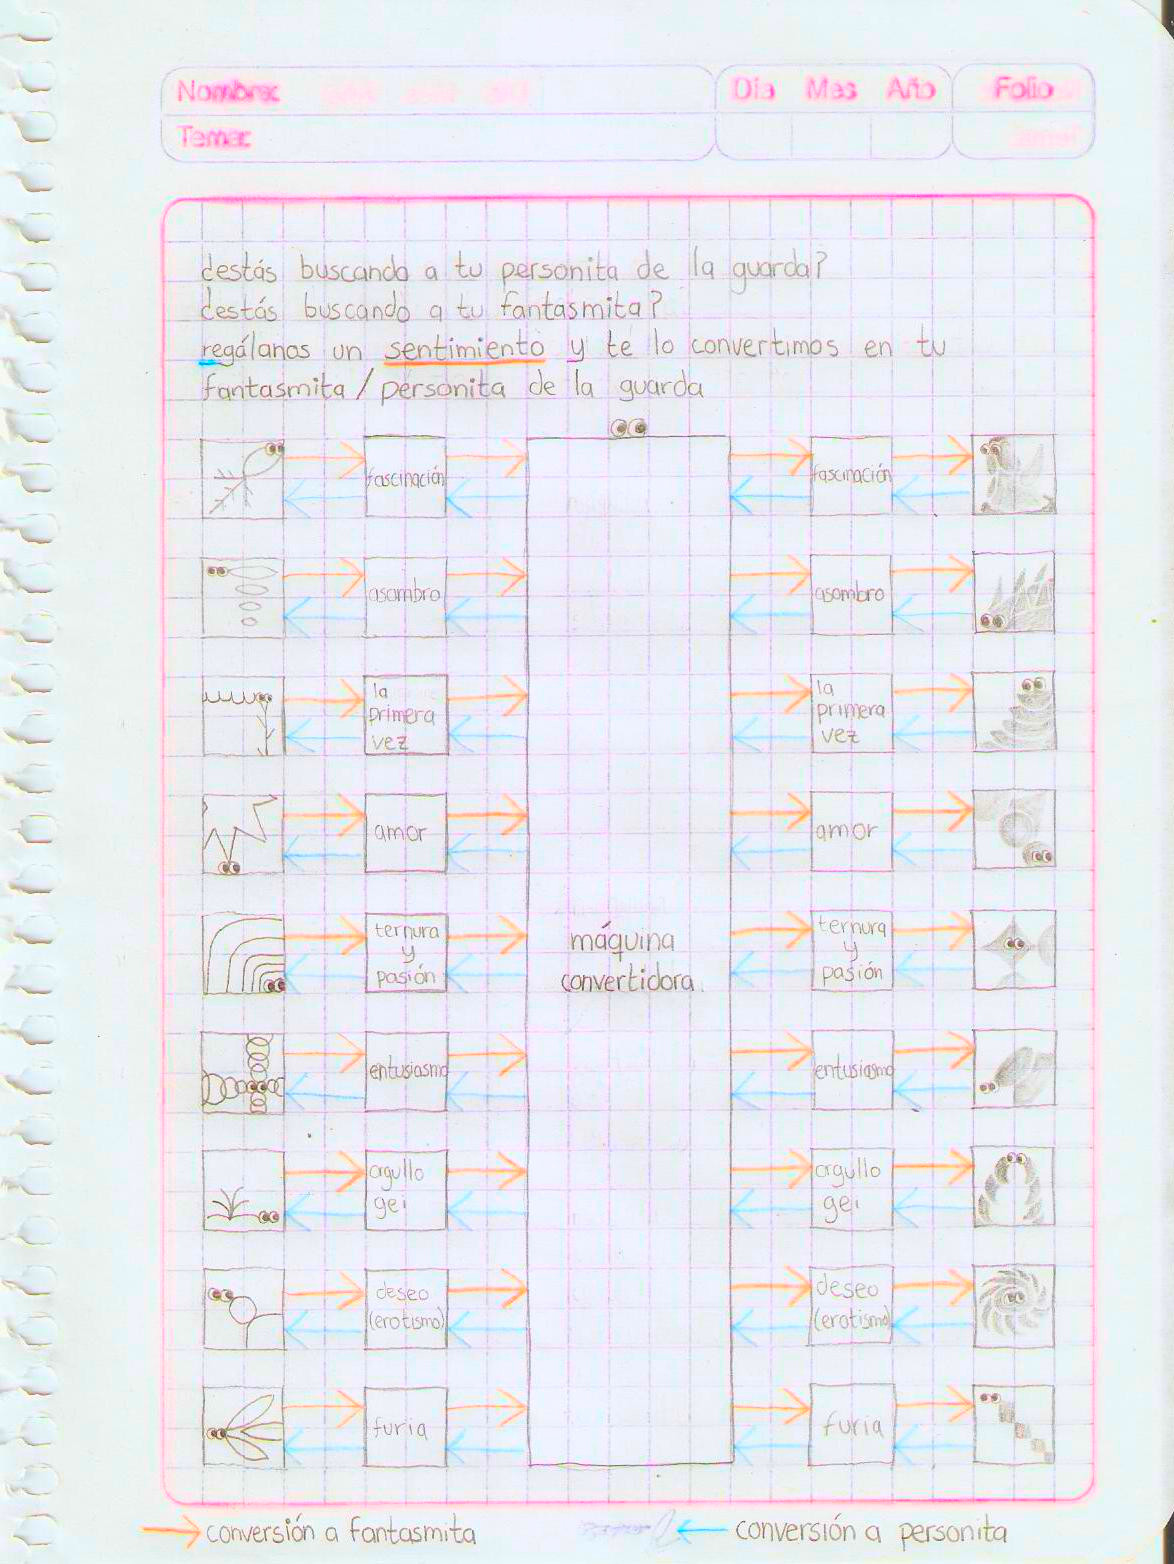 Nombre:
Día Mes Año
Folio
Tema:
¿estás buscando a tu personita de la guarda?
¿estás buscando a tu fantasmita?
regálanos un sentimiento y te lo convertimos en tu
fantasmita/personita de la guarda
fascinación
fascinación
asombro
asombro
la
primera
vez
la
primera
vez
amor
amor
ternura
y
pasión
máquina
convertidora
ternura
y
pasión
entusiasmo
entusiasmo
orgullo
gei
orgullo
gei
deseo
(erotismo)
deseo
(erotismo)
furia
furia
conversión a fantasmita
conversión a personita